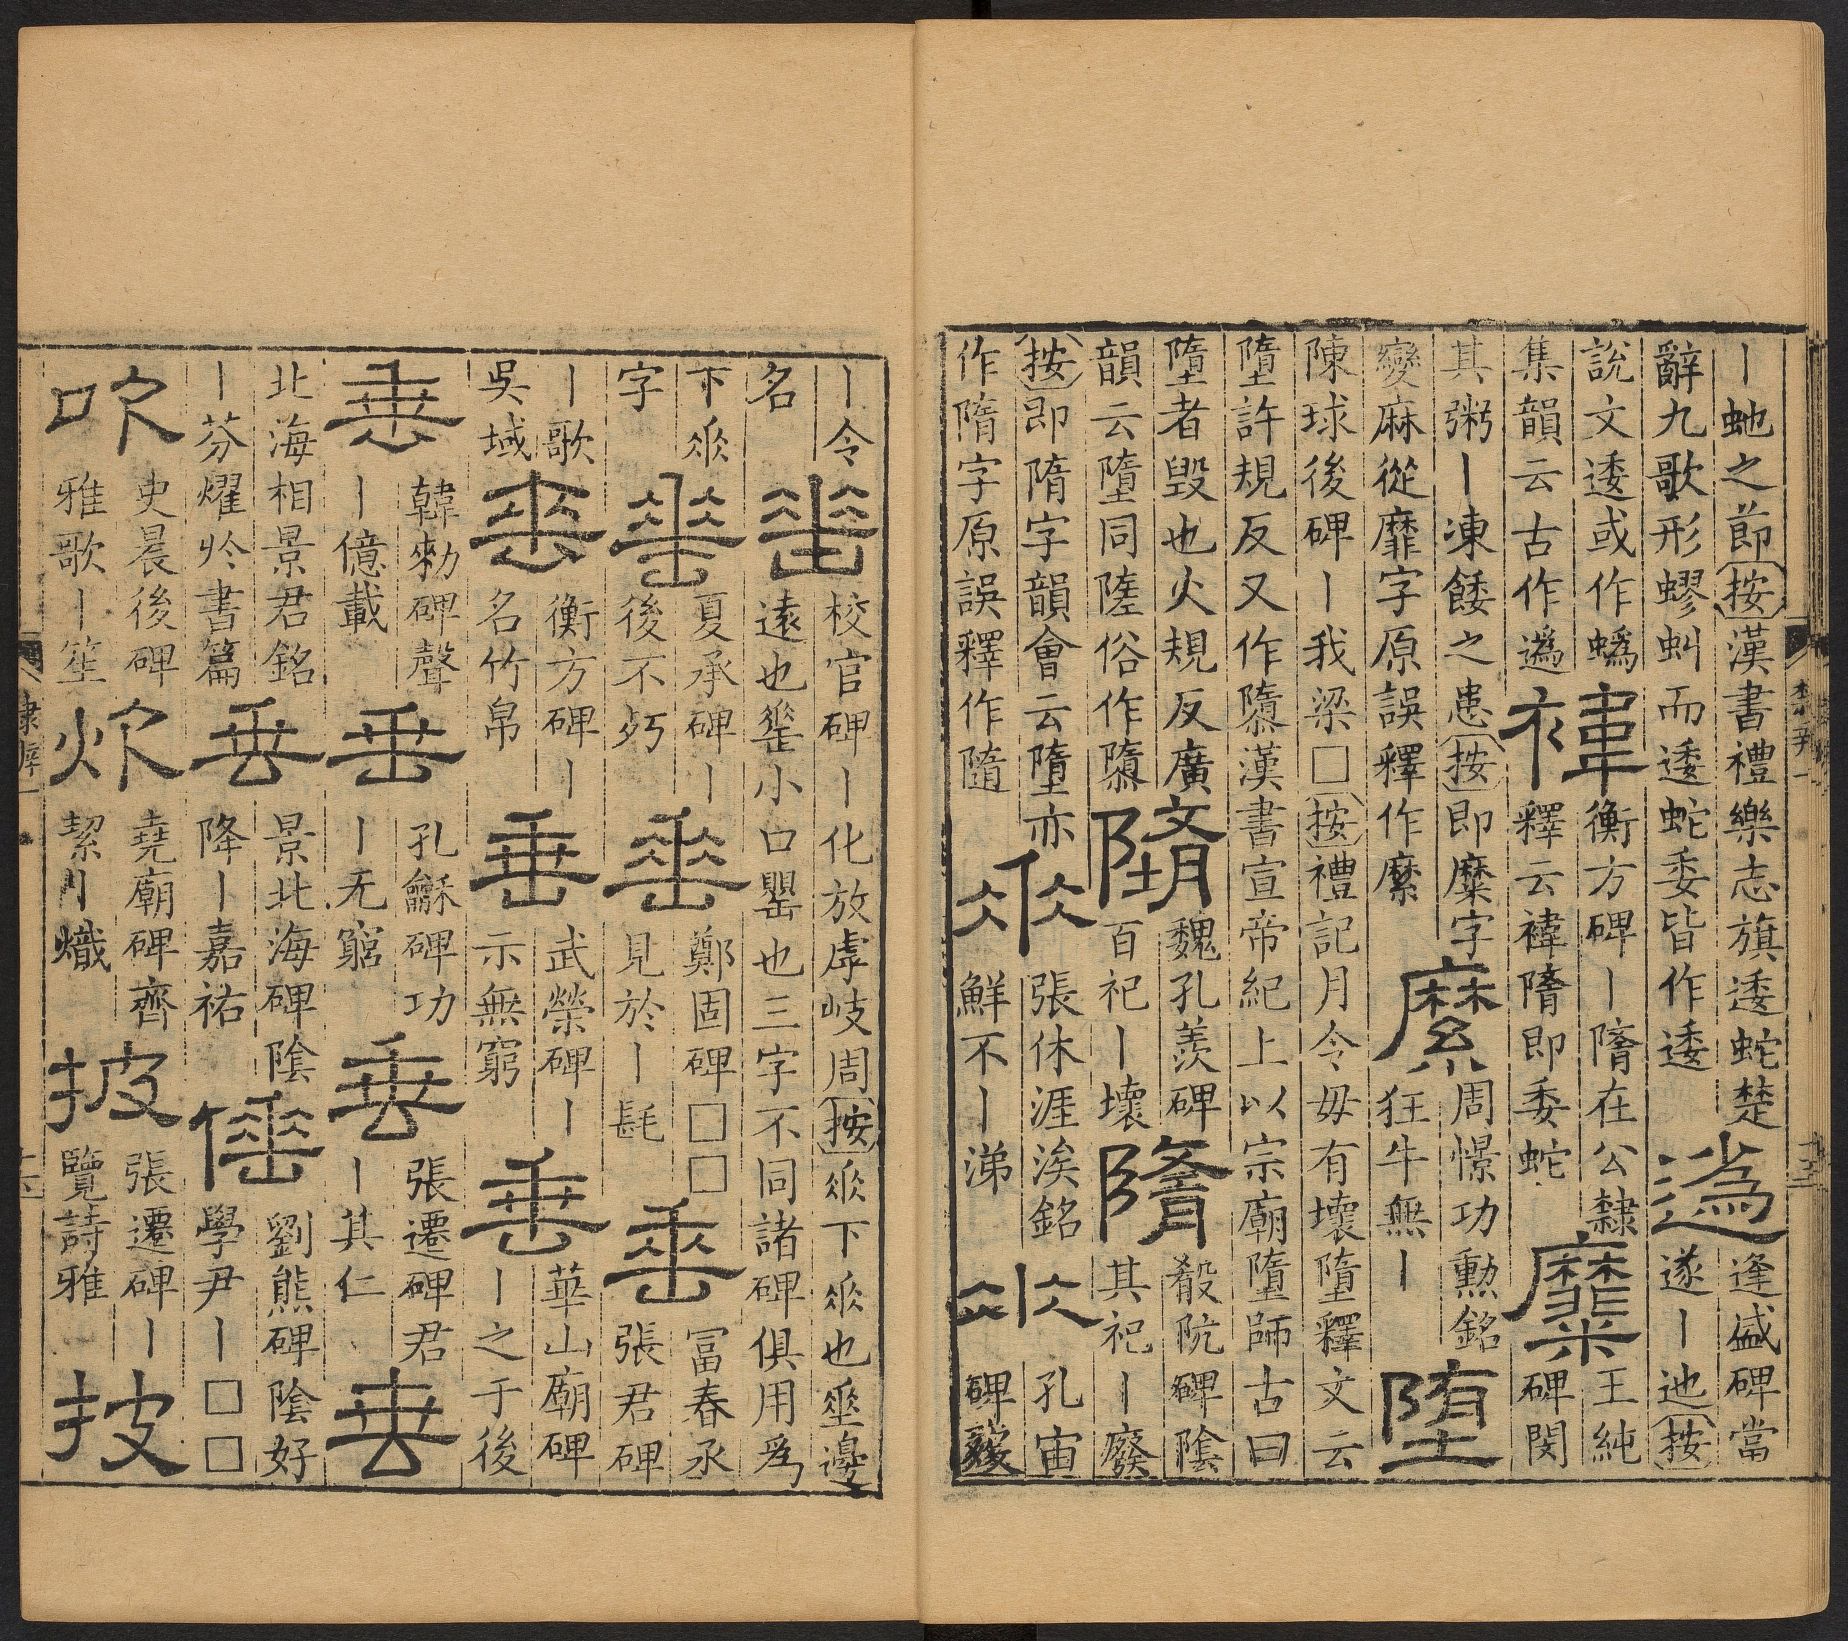 丨虵之節按漢書禮樂志旗逶蛇楚
辭九歌形蟉虬而逶蛇委皆作逶
逢盛碑當
遂丨迆按
說文逶或作蟡
集韻云古作
褘
衡方碑丨隋在公隸
釋云褘隋即委蛇
糜
王純
碑閔
其粥丨凍餧之患按即糜字
變麻從靡字原誤釋作縻
縻
周憬功勲銘
狂牛無丨
堕
陳球後碑丨我梁□按禮記月令毋有壞墮釋文云
墮許規反又作隳漢書宣帝紀上以宗廟墮師古曰
墮者毁也火規反廣
韻云墮同隓俗作隳
隋
魏孔羨碑
百祀丨壞
隋
殽阬碑陰
其祀丨廢
按即隋字韻會云墮亦
作隋字原誤釋作隨
𠂹
張休涯涘銘
鮮不丨涕
𠂹
孔宙
碑
丨令
名
垂
校官碑丨化放虖岐周按𠂹下𠂹也埀邊
遠也䍋小口罌也三字不同諸碑俱用爲
下𠂹
字
垂
夏承碑丨
後不朽
垂
鄭固碑□□
見於丨髦
垂
冨春丞
張君碑
丨歌
吳域
垂
衡方碑丨
名竹帛
垂
武榮碑丨
示無窮
垂
華山廟碑
丨之于後
垂
韓勑碑聲
丨億載
垂
孔龢碑功
丨无窮
垂
張遷碑君
丨其仁
垂
北海相景君銘
丨芬燿於書篇
垂
景北海碑陰
降丨嘉祐
倕
劉熊碑陰好
學尹丨□□
吹
史晨後碑
雅歌丨笙
炊
堯廟碑齊
絜丨熾
披
張遷碑丨
覽詩雅
披
隸辨一